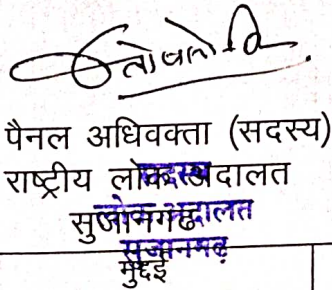 पैनल अधिवक्ता (सदस्य)
राष्ट्रीय लोक अदालत
सदस्य
सुजानगढ
लोक अदालत
सुजानगढ़
मुद्दई